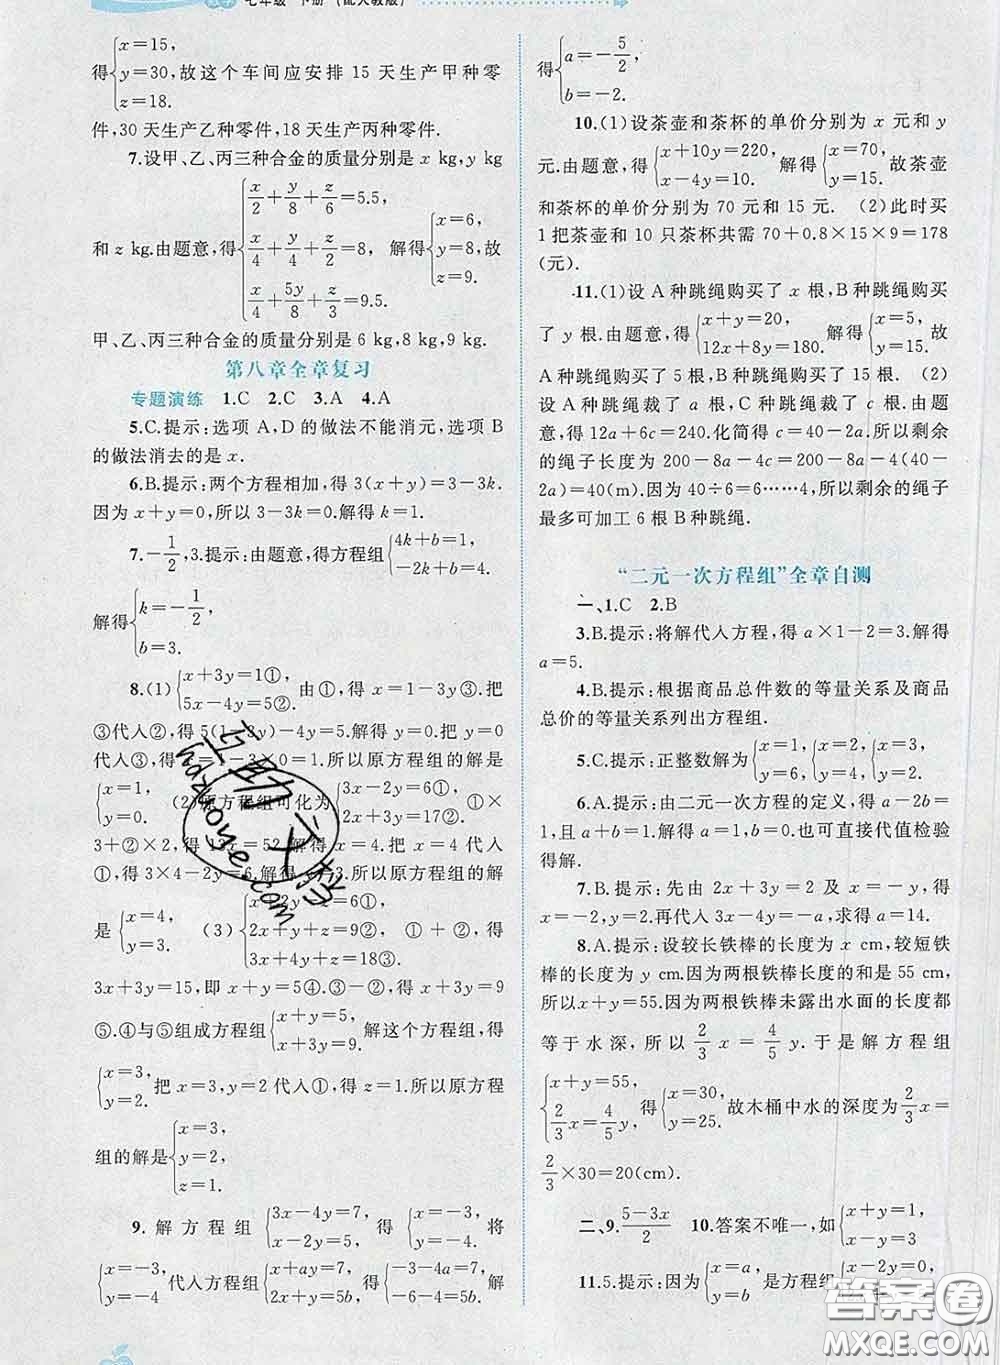 七年级 下册 (配人教版)
得{x=15, y=30, z=18. 故这个车间应安排 15 天生产甲种零
件,30 天生产乙种零件,18 天生产丙种零件.
7.设甲、乙、丙三种合金的质量分别是 x kg,y kg
和 z kg.由题意,得{x/2+y/8+z/6=5.5, x/4+y/4+z/2=8, x/4+5y/8+z/3=9.5. 解得{x=6, y=8, z=9. 故
甲、乙、丙三种合金的质量分别是 6 kg,8 kg,9 kg.
第八章全章复习
专题演练 1.C 2.C 3.A 4.A
5.C.提示:选项 A,D 的做法不能消元,选项 B
的做法消去的是 x.
6.B.提示:两个方程相加,得 3(x+y)=3-3k.
因为 x+y=0,所以 3-3k=0.解得 k=1.
7.-1/2,3.提示:由题意,得方程组{4k+b=1, -2k+b=4.
解得{k=-1/2, b=3.
8.(1){x+3y=1①, 5x-4y=5②. 由①,得 x=1-3y③.把
③代入②,得 5(1-3y)-4y=5.解得 y=0.把 y=0
代入③,得 x=1-3×0=1.所以原方程组的解是
{x=1, y=0. (2)原方程组可化为{3x-2y=6①, 2x+3y=17②. ①×
3+②×2,得 13x=52.解得 x=4.把 x=4 代入
①,得 3×4-2y=6.解得 y=3.所以原方程组的解
是{x=4, y=3. (3){x-2y=z①, 2x+y+z=9②, 3x+4y+z=18③. ①+②,得
3x+3y=15,即 x+y=5④.③-②,得 x+3y=9
⑤.④与⑤组成方程组{x+y=5, x+3y=9. 解这个方程组,得
{x=3, y=2. 把 x=3,y=2 代入①,得 z=1.所以原方程
组的解是{x=3, y=2, z=1.
9.解方程组{3x-4y=7, 2x-y=-2. 得{x=-3, y=-4. 将
{x=-3, y=-4 代入方程组{ax+y=7, 2x+ay=5b, 得{-3a-4=7, -6-4a=5b. 解
得{a=-5/2, b=-2.
10.(1)设茶壶和茶杯的单价分别为 x 元和 y
元.由题意,得{x+10y=220, x-4y=10. 解得{x=70, y=15. 故茶壶
和茶杯的单价分别为 70 元和 15 元. (2)此时买
1 把茶壶和 10 只茶杯共需 70+0.8×15×9=178
(元).
11.(1)设 A 种跳绳购买了 x 根,B 种跳绳购买
了 y 根.由题意,得{x+y=20, 12x+8y=180. 解得{x=5, y=15. 故
A 种跳绳购买了 5 根,B 种跳绳购买了 15 根. (2)
设 A 种跳绳裁了 a 根,B 种跳绳裁了 c 根.由题
意,得 12a+6c=240.化简得 c=40-2a.所以剩余
的绳子长度为 200-8a-4c=200-8a-4(40-
2a)=40(m).因为 40÷6=6……4,所以剩余的绳子
最多可加工 6 根 B 种跳绳.
“二元一次方程组”全章自测
一、1.C 2.B
3.B.提示:将解代入方程,得 a×1-2=3.解得
a=5.
4.B.提示:根据商品总件数的等量关系及商品
总价的等量关系列出方程组.
5.C.提示:正整数解为{x=1, y=6, {x=2, y=4, {x=3, y=2.
6.A.提示:由二元一次方程的定义,得 a-2b=
1,且 a+b=1.解得 a=1,b=0.也可直接代值检验
得解.
7.B.提示:先由 2x+3y=2 及 x=-y,得
x=-2,y=2.再代入 3x-4y=-a,求得 a=14.
8.A.提示:设较长铁棒的长度为 x cm,较短铁
棒的长度为 y cm.因为两根铁棒长度的和是 55 cm,
所以 x+y=55.因为两根铁棒未露出水面的长度都
等于水深,所以 2/3 x=4/5 y.于是解方程组
{x+y=55, 2/3 x=4/5 y. 得{x=30, y=25. 故木桶中水的深度为 2/3 x=
2/3×30=20(cm).
二、9.(5-3x)/2 10.答案不唯一,如{x+y=1, x-y=3
11.5.提示:因为{x=a, y=b 是方程组
互助文档
hdzuoye.com
答案圈
MXQE.COM